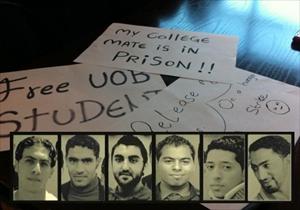 MY COLLEGE
MATE IS IN
PRISON!!
Free UOB
STUDENT
Release